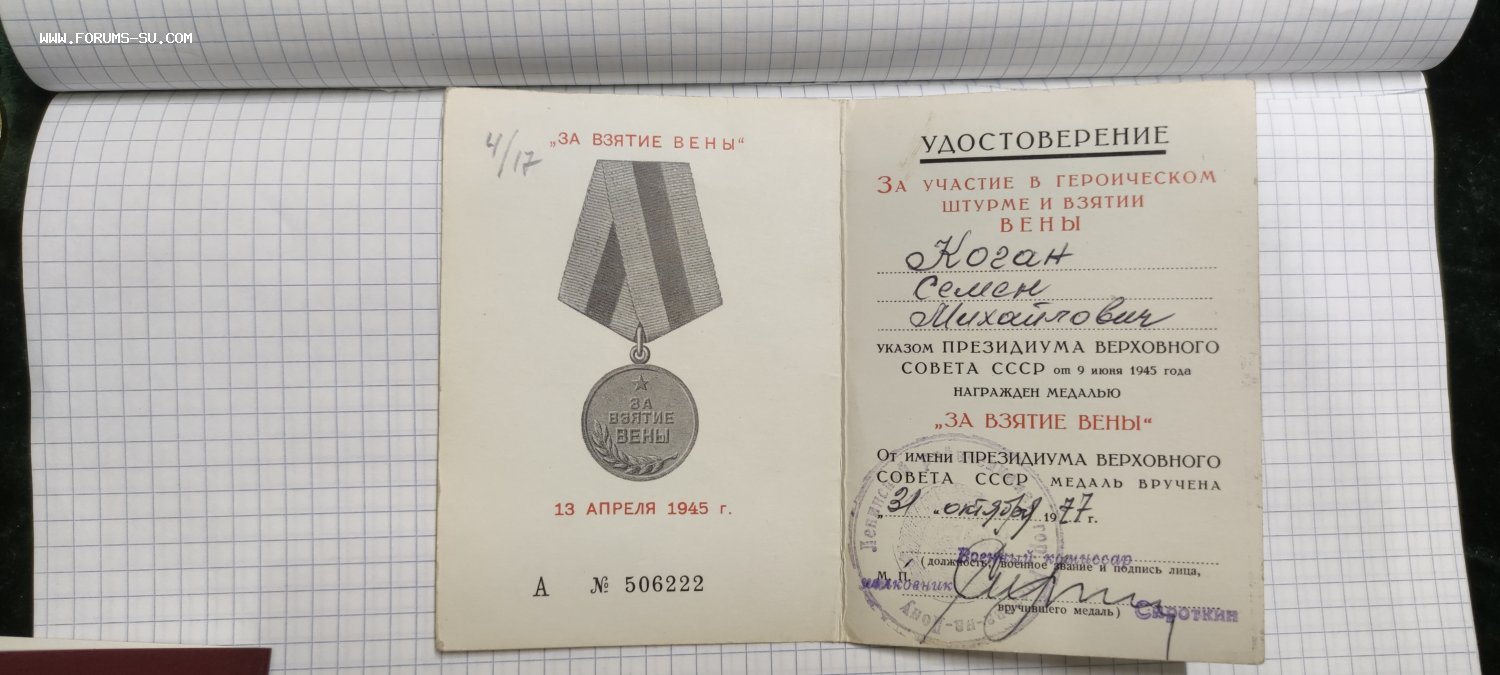 WWW.FORUMS-SU.COM
4/17
„ЗА ВЗЯТИЕ ВЕНЫ“
ЗА
ВЗЯТИЕ
ВЕНЫ
13 АПРЕЛЯ 1945 г.
А № 506222
УДОСТОВЕРЕНИЕ
ЗА УЧАСТИЕ В ГЕРОИЧЕСКОМ
ШТУРМЕ И ВЗЯТИИ
ВЕНЫ
Коган
Семен
Михайлович
УКАЗОМ ПРЕЗИДИУМА ВЕРХОВНОГО
СОВЕТА СССР от 9 июня 1945 года
НАГРАЖДЕН МЕДАЛЬЮ
„ЗА ВЗЯТИЕ ВЕНЫ“
От имени ПРЕЗИДИУМА ВЕРХОВНОГО
СОВЕТА СССР МЕДАЛЬ ВРУЧЕНА
„31“ октября 1977 г.
Военный комиссар
(должность, военное звание и подпись лица,
М. П.
полковник
вручившего медаль)
Сироткин